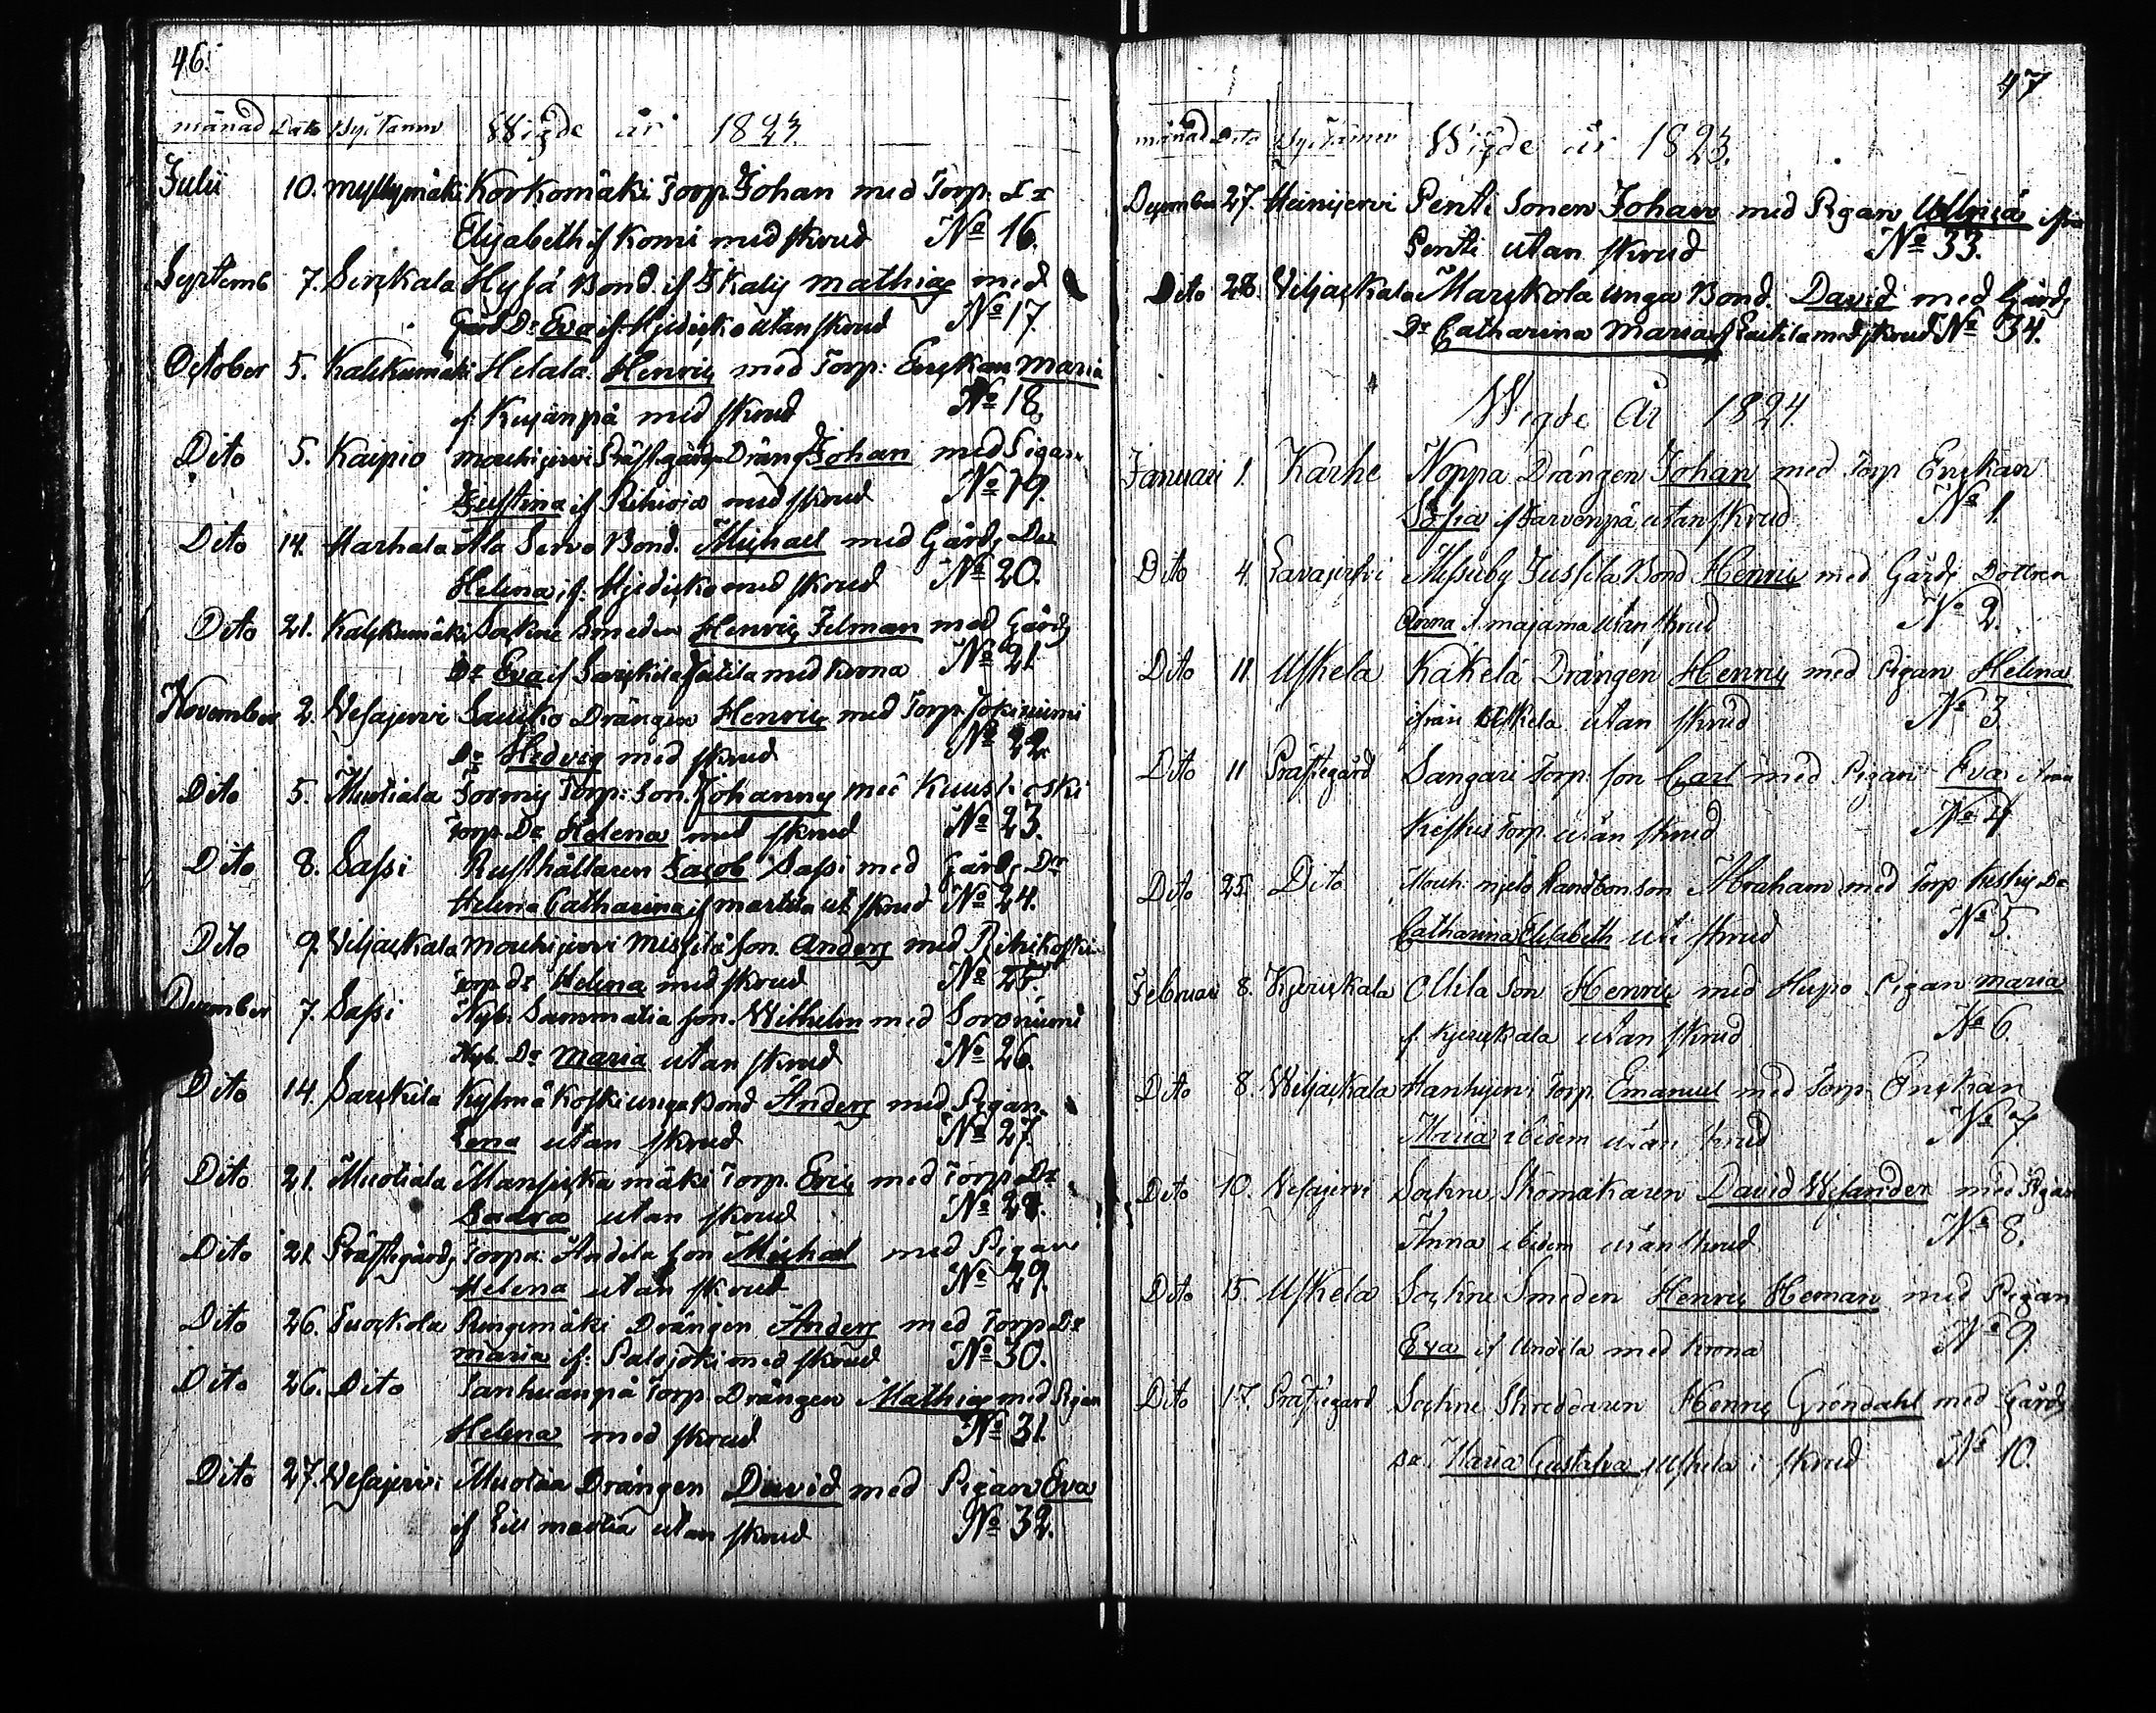 46.
månad Dato Wigde år 1823.
Julii 10. Myllymäki Korkomäki Torp. Johan med Torp. Dr
Elisabeth if Komi med skrud No 16.
Septemb 7. Sirkala Hyssä Bond. if mathias med
Gård Dr Eva if Hjedisko utan skrud No 17
October 5. Kalskumäki Helala Henric med Torp: Enckan Maria
if med skrud No 18.
Dito 5. Kaipio mouhijervi Prästgårds Dräng Johan med Pigan
Justina if med skrud No 19.
Dito 14. Harhala Ala Servo Bond. Michael med Gårds Dr
Helena if: Hjedisko med skrud No 20.
Dito 21. Kalskumäki Sockne Smeden Henric Felman med Gårds
Dr Eva if Sarskila med krona No 21.
November 2. Vesajervi Sausko Drängen Henric med Torp. Jokiniemi
Dr Hedvig med skrud No 22.
Dito 5. Muotiala Tormy Torp: Son. Johannes med Kuuskoski
Torp. Dr Helena med skrud No 23.
Dito 8. Sassi Rusthållaren Jacob Sassi med Gårds Dr
Helena Catharina if martila ut skrud No 24.
Dito 9. Viljaskala mouhijervi son. Anders med
Torp. Dr Helena med skrud No 25.
December 7. Sassi Nyb. Sammatia son. Wilhelm med Soroniemi
Nyb. Dr Maria utan skrud No 26.
Dito 14. Sarskila Kylmäkoski unga Bond Anders med Pigan
Lena utan skrud No 27.
Dito 21. Muotiala Mansiska mäki Torp. Eric med Torp. Dr
Saara utan skrud No 28.
Dito 21 Prästegårds Torpa. Andela son Michal med Pigan
Helena utan skrud No 29.
Dito 26. Tuorkola Drängen Anders med Torp Dr
maria if: Palojoki med skrud No 30.
Dito 26. Dito Tanhuanpä Torp. Drängen Mathias med Pigan
Helena med skrud No 31.
Dito 27. Vesajervi Muotiaa Drängen David med Pigan Eva
if Lill martia utan skrud No 32.
47
månad Dato Wigde år 1823.
December 27. Heinijervi Penti Sonen Johan med Pigan Ulrica ifrån
Penti utan skrud No 33.
Dito 28. Viljaskala Marskola unga Bond. David med Gårds
Dr Catharina Maria if med skrud No 34.
Wigde År 1824.
Januari 1. Karhe Noppa Drängen Johan med Torp Enckan
Sofia if Jarvenpä utan skrud No 1.
Dito 4. Lavajervi Missuby Jussila Bond Henric med Gårds Dottren
Anna if majama utan skrud No 2.
Dito 11. Uskela Käkelä Drängen Henric med Pigan Helena
ifrån Uskela utan skrud No 3.
Dito 11 Prästegård Sangari Torp. son Carl med Pigan Eva ifrån
Torp. utan skrud No 4
Dito 25. Dito Mouh: son Abraham med Torp Dr
Catharina Elisabeth uti skrud No 5.
Februari 8. Kjeriskala Ollila Son Henric med Hepo Pigan Maria
if. Kjeriskala utan skrud No 6.
Dito 8. Wiljaskala Hanhijervi Torp. Emanuel med Torp. Enckan
Maria ibidem utan skrud No 7
Dito 10. Vesajervi Sockne Skomakaren David Wesander med Pigan
Anna ibidem utan skrud No 8.
Dito 15. Uskela Sockne Smeden Henric Heman med Pigan
Eva if Undila med krona No 9
Dito 17. Prästegård Sockne Skreddaren Henric Gröndahl med Gårds
Dr. Maria Gustafva if Uskela i skrud No 10.